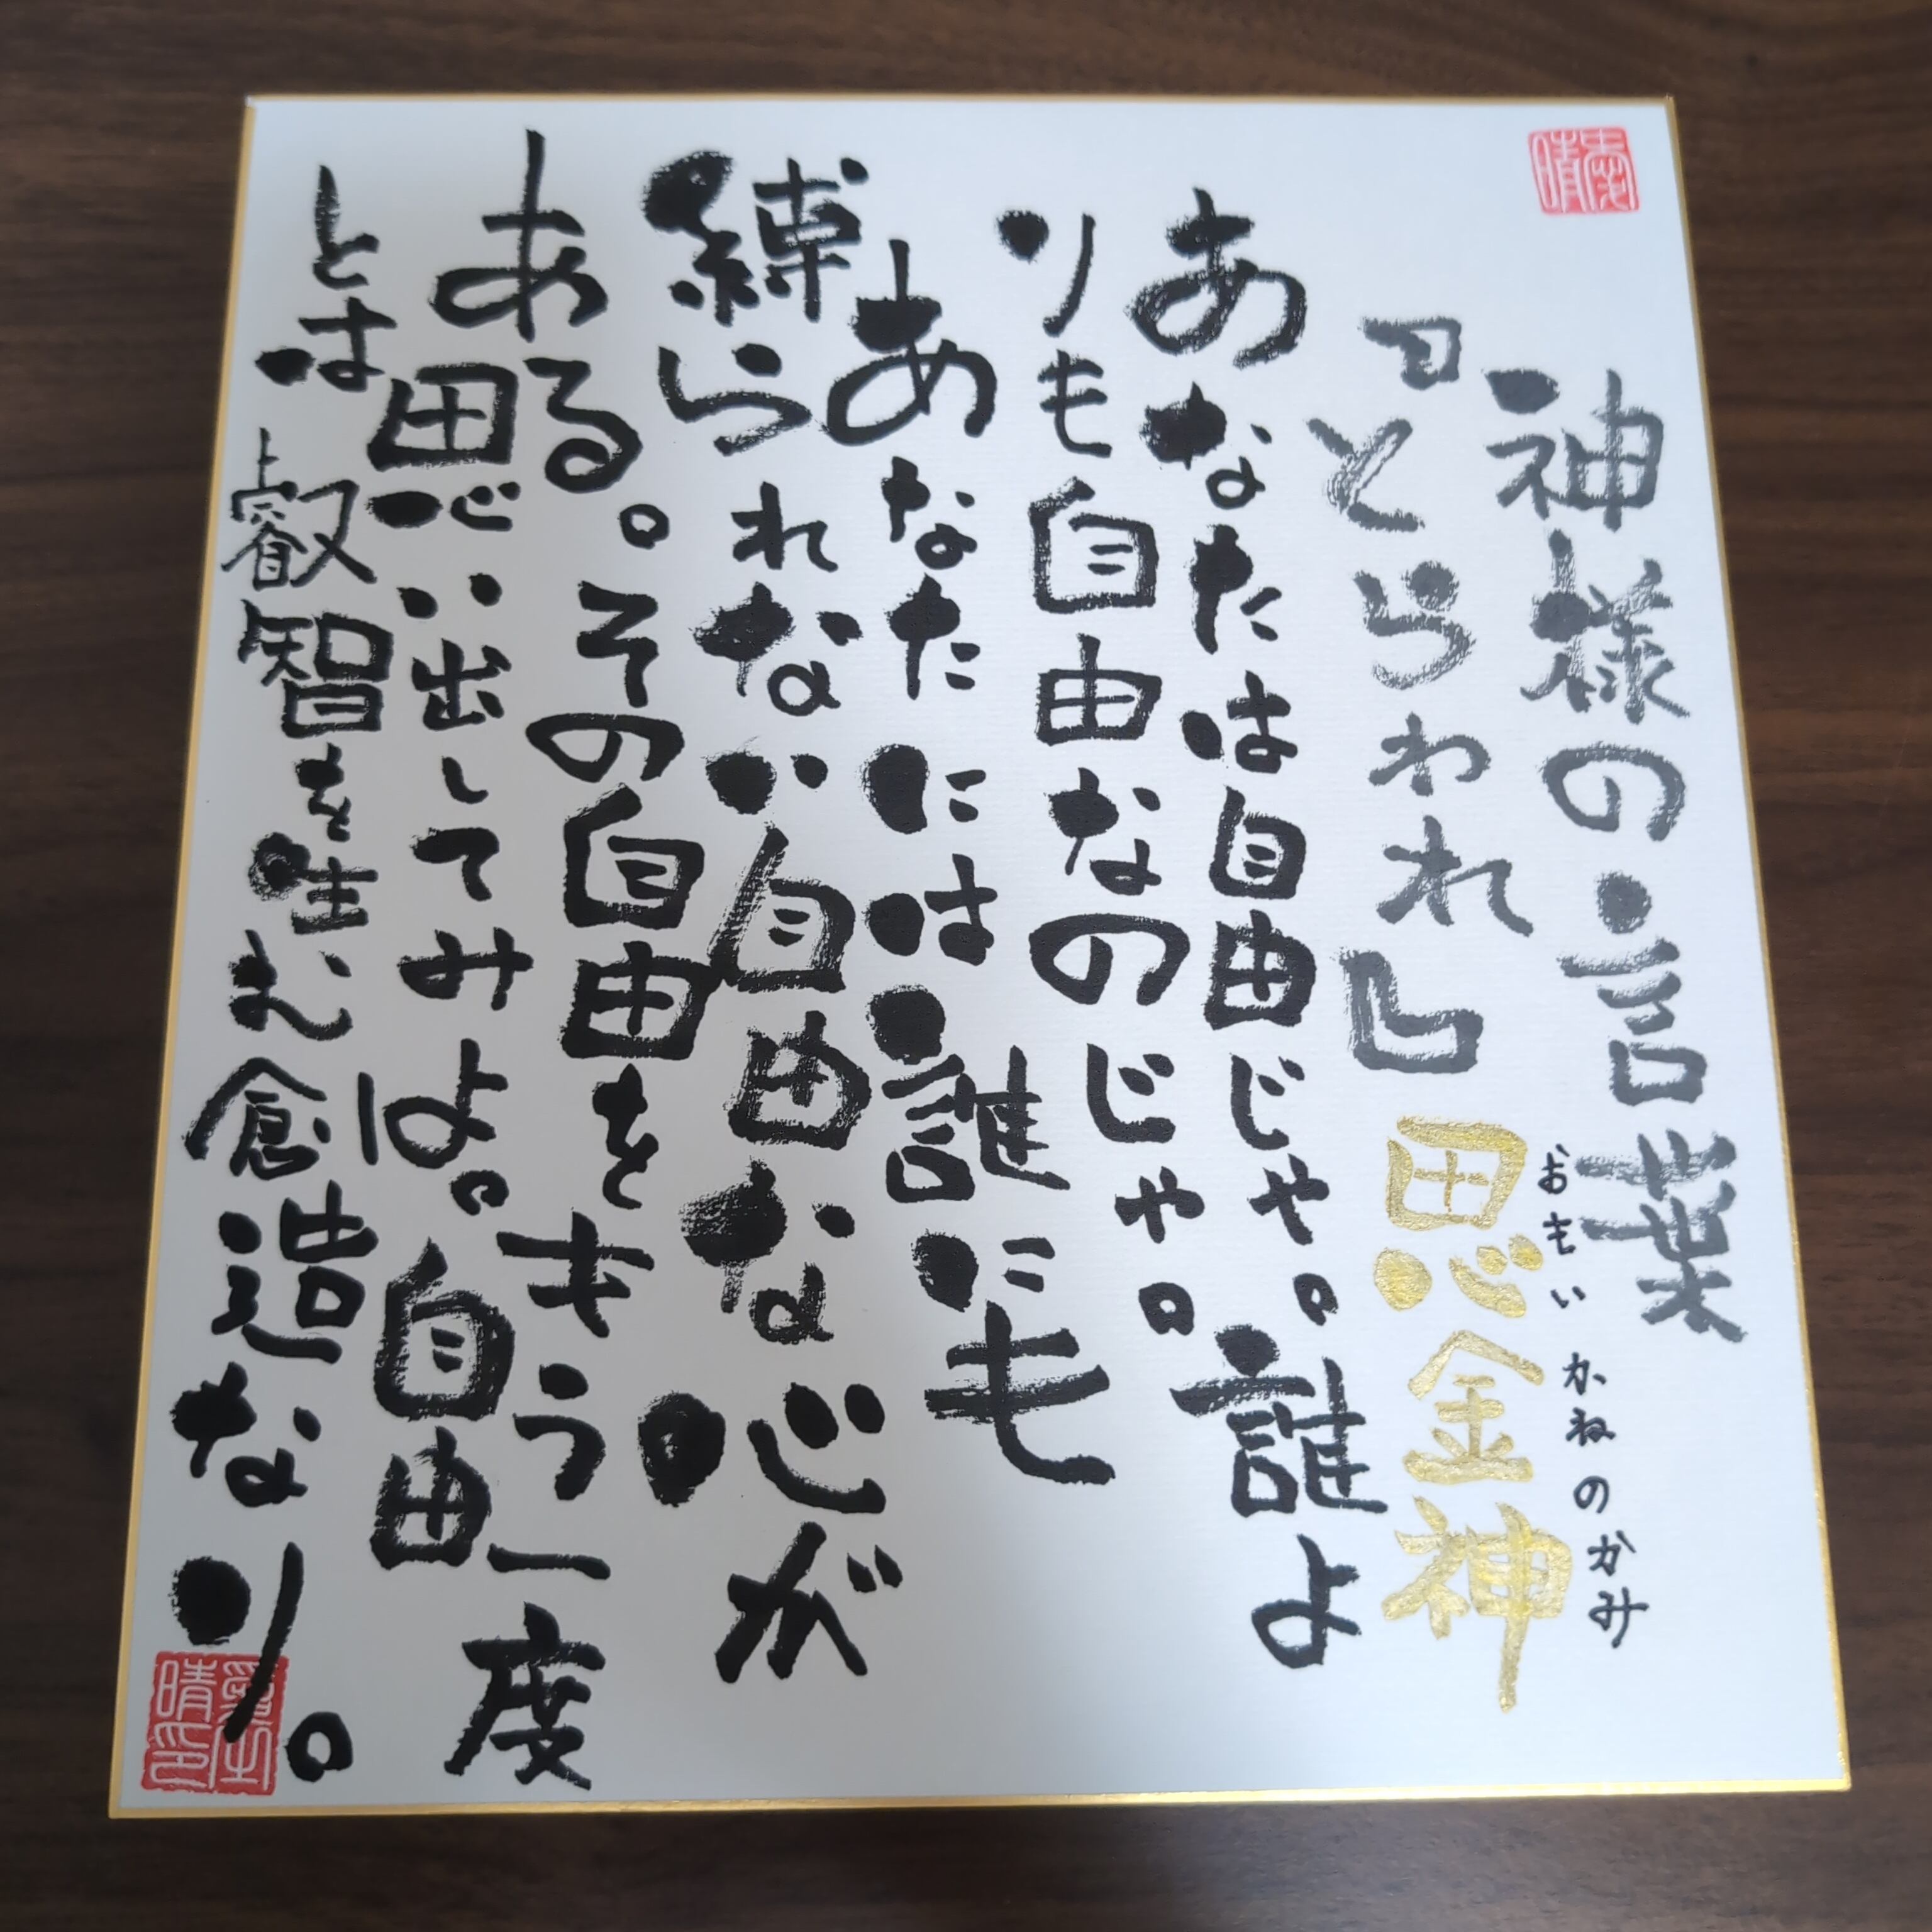 神様の言葉
『とらわれ』思金神
おもいかねのかみ
あなたは自由じゃ。誰よ
りも自由なのじゃ。
あなたには誰にも
縛られない自由な心が
ある。その自由をもう一度
思い出してみよ。自由
とは叡智を生む創造なり。